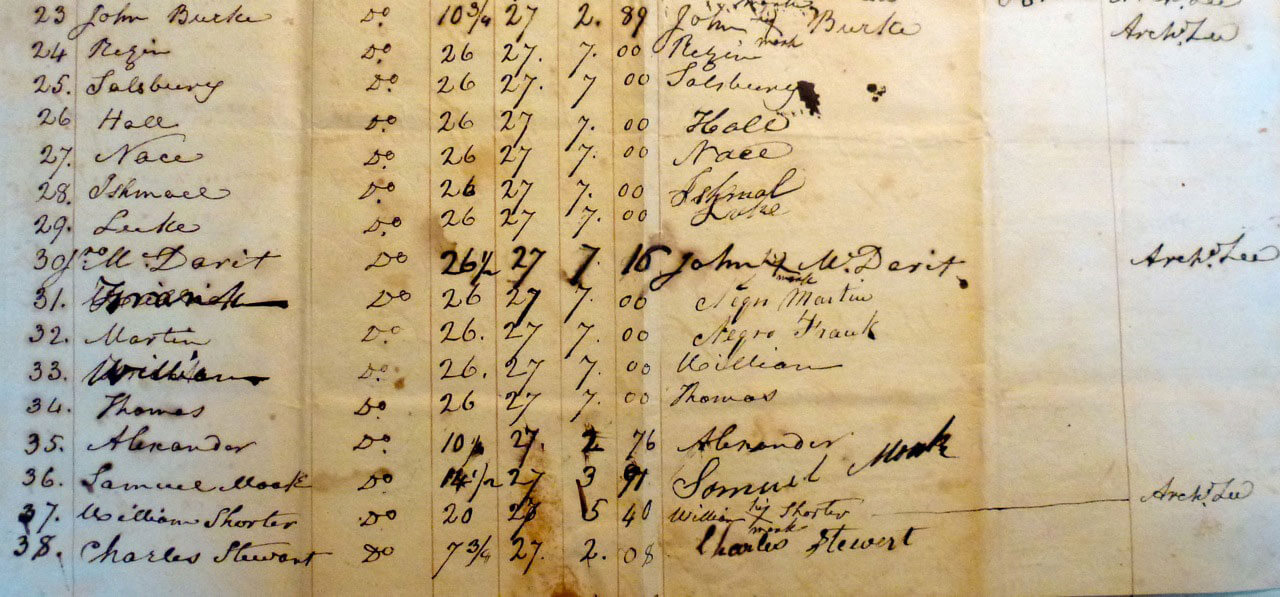 23 John Burke Do 10 3/4 27 2. 89 John his mark Burke Archd. Lee
24 Rezin Do. 26 27. 7. 00 Rezin
25. Salsbury Do. 26 27. 7 00 Salsbury
26 Hall Do. 26 27 7. 00 Hall
27. Nace Do. 26 27 7. 00 Nace
28. Ishmael Do. 26 27 7. 00 Ishmal
29. Luke Do 26 27 7. 00 Luke
30 Jno. Mc. Davit Do 26 1/2 27 7. 16 John his mark Mc. Davit Archd. Lee
31. Do 26 27 7. 00 Negro Martin
32. Martin Do. 26. 27 7. 00 Negro Frank
33. William Do. 26. 27 7. 00 William
34. Thomas Do. 26 27 7. 00 Thomas
35. Alexander Do. 10 27. 2 76 Alexander
36. Samuel Moak Do 14 1/2 27 3 91 Samuel Moak
37. William Shorter Do 20 27 5 40 William his mark Shorter Archd. Lee
38. Charles Stewart Do 7 3/4 27. 2. 08 Charles Stewert